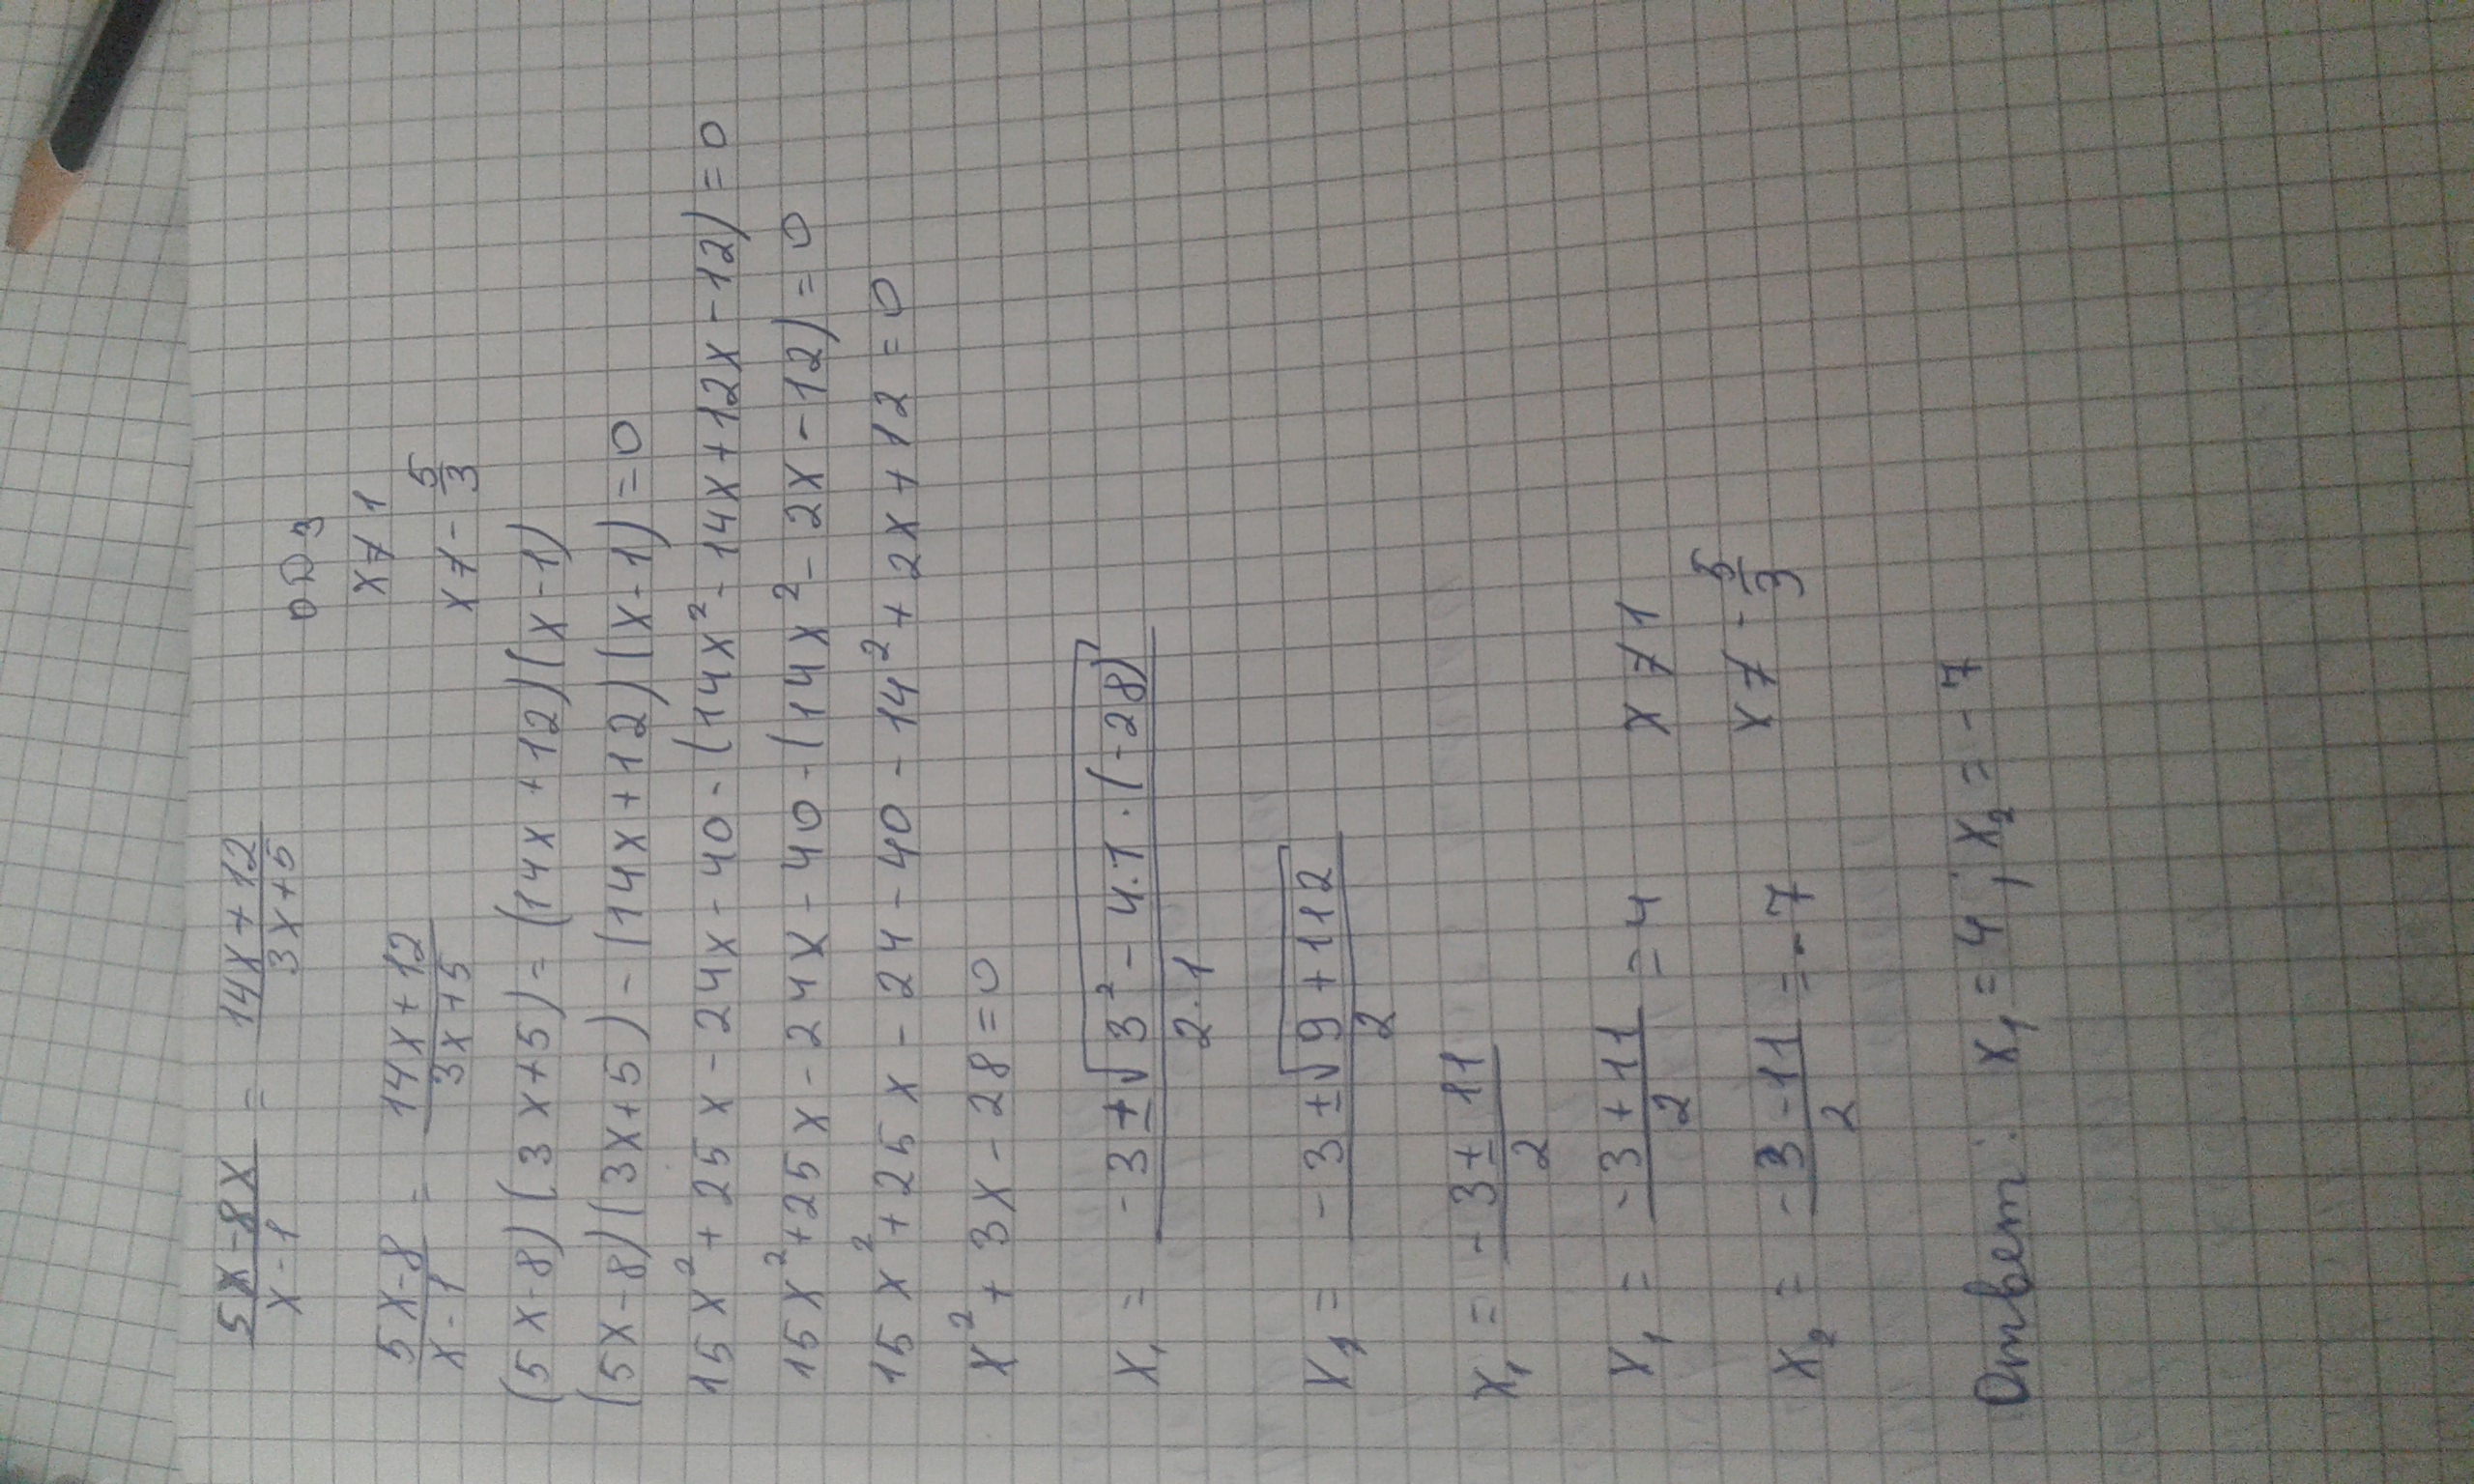 5x-8x/x-1 = 14x+12/3x+5
ОДЗ
x≠1
5x-8/x-1 = 14x+12/3x+5
x≠-5/3
(5x-8)(3x+5)=(14x+12)(x-1)
(5x-8)(3x+5)-(14x+12)(x-1)=0
15x²+25x-24x-40-(14x²-14x+12x-12)=0
15x²+25x-24x-40-(14x²-2x-12)=0
15x²+25x-24-40-14²+2x+12=0
x²+3x-28=0
x₁= -3±√3²-4·1·(-28)/2·1
x₁= -3±√9+112/2
x₁= -3±11/2
x₁= -3+11/2=4 x≠1
x₂= -3-11/2=-7 x≠-5/3
Ответ: x₁=4; x₂=-7